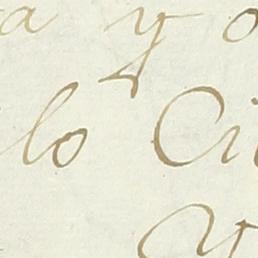 a y o
lo Ci